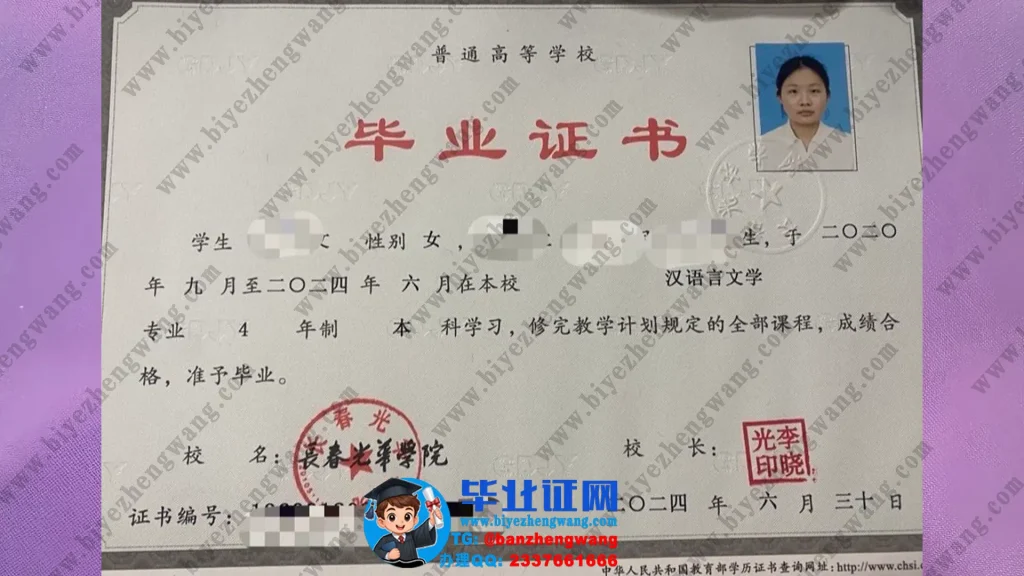 普通高等学校
毕业证书
学生 性别 女，生，于 二〇二〇
年 九 月至二〇二四 年 六 月在本校 汉语言文学
专业 4 年制 本 科学习，修完教学计划规定的全部课程，成绩合
格，准予毕业。
春光
校 名：長春光華學院 校 长： 李晓光印
证书编号： 二〇二四 年 六 月 三十 日
毕业证网
www.biyezhengwang.com
TG: @banzhengwang
办理QQ: 2337661666
中华人民共和国教育部学历证书查询网址：http://www.chsi.c
www.biyezhengwang.com